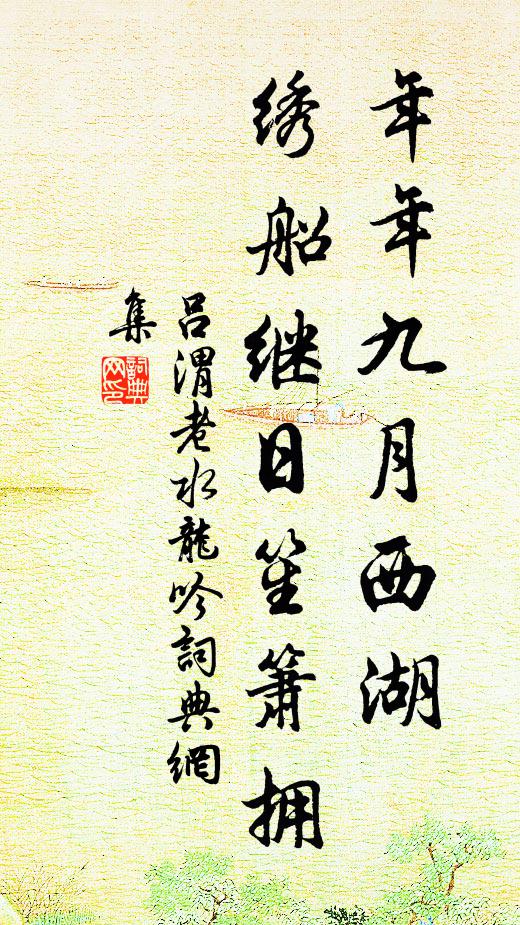 年年九月西湖
绣船继日笙箫拥
吕渭老水龍吟詞典網
集
詞典网印